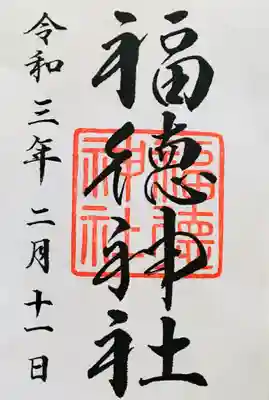 福徳神社
令和三年二月十一日
福徳
神社